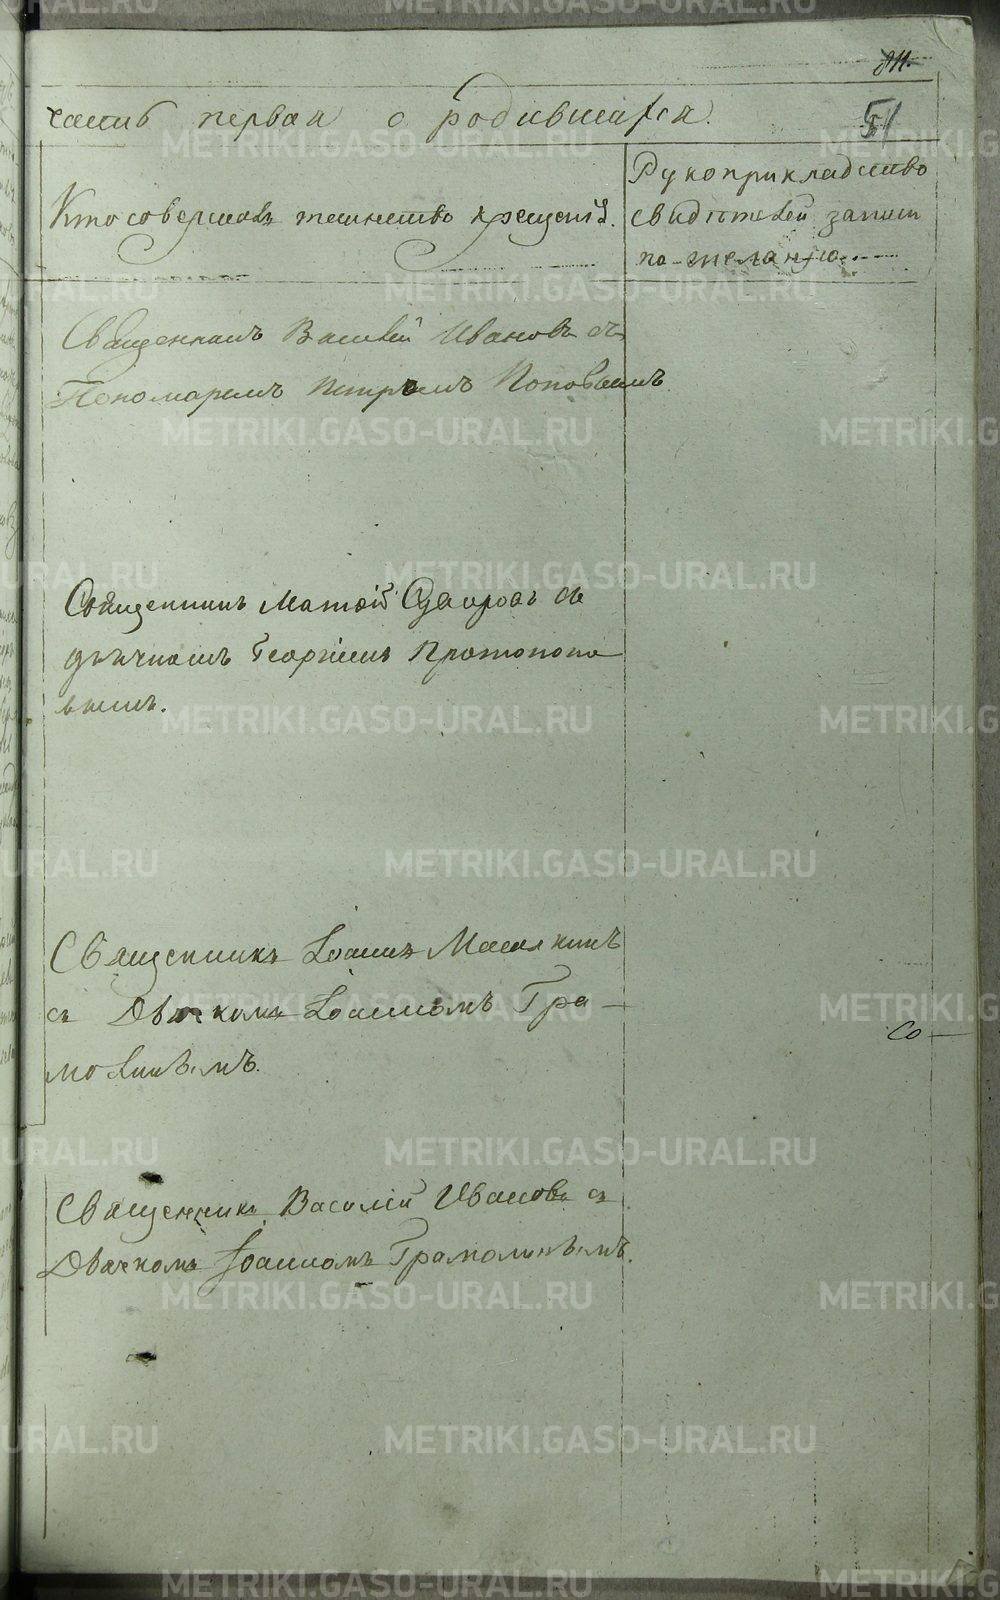 51
часть первая о родившихся.
Кто совершалъ таинство крещенія.
Рукоприкладство
свидѣтелей запись
по желанію.
Священникъ Василій Ивановъ съ
Пономаремъ Петромъ Поповымъ
Священникъ Матѳій Сузаровъ съ
дьячкомъ Георгіемъ Протопопо
вымъ.
Священникъ Іоаннъ
съ Дьячкомъ Іоанномъ Гра-
молинымъ.
Со-
Священникъ Василій Ивановъ съ
Дьячкомъ Іоанномъ Грамолинымъ.
METRIKI.GASO-URAL.RU